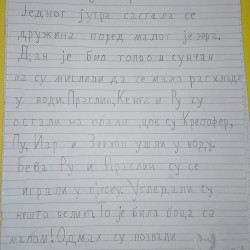 Једног јутра састала се
дружина поред малог језера.
Дан је био топао и сунчан
па су мислили да се мало расхладе
у води. Праслин, Кенга и Ру су
остали на обали док су Кристофер,
Пу, Иар и Зекоп ушли у воду.
Беба Ру и Праслин су се
играли у песку. Угледали су
нешто велико. То је била боца са
мапом! Одмах су позвали